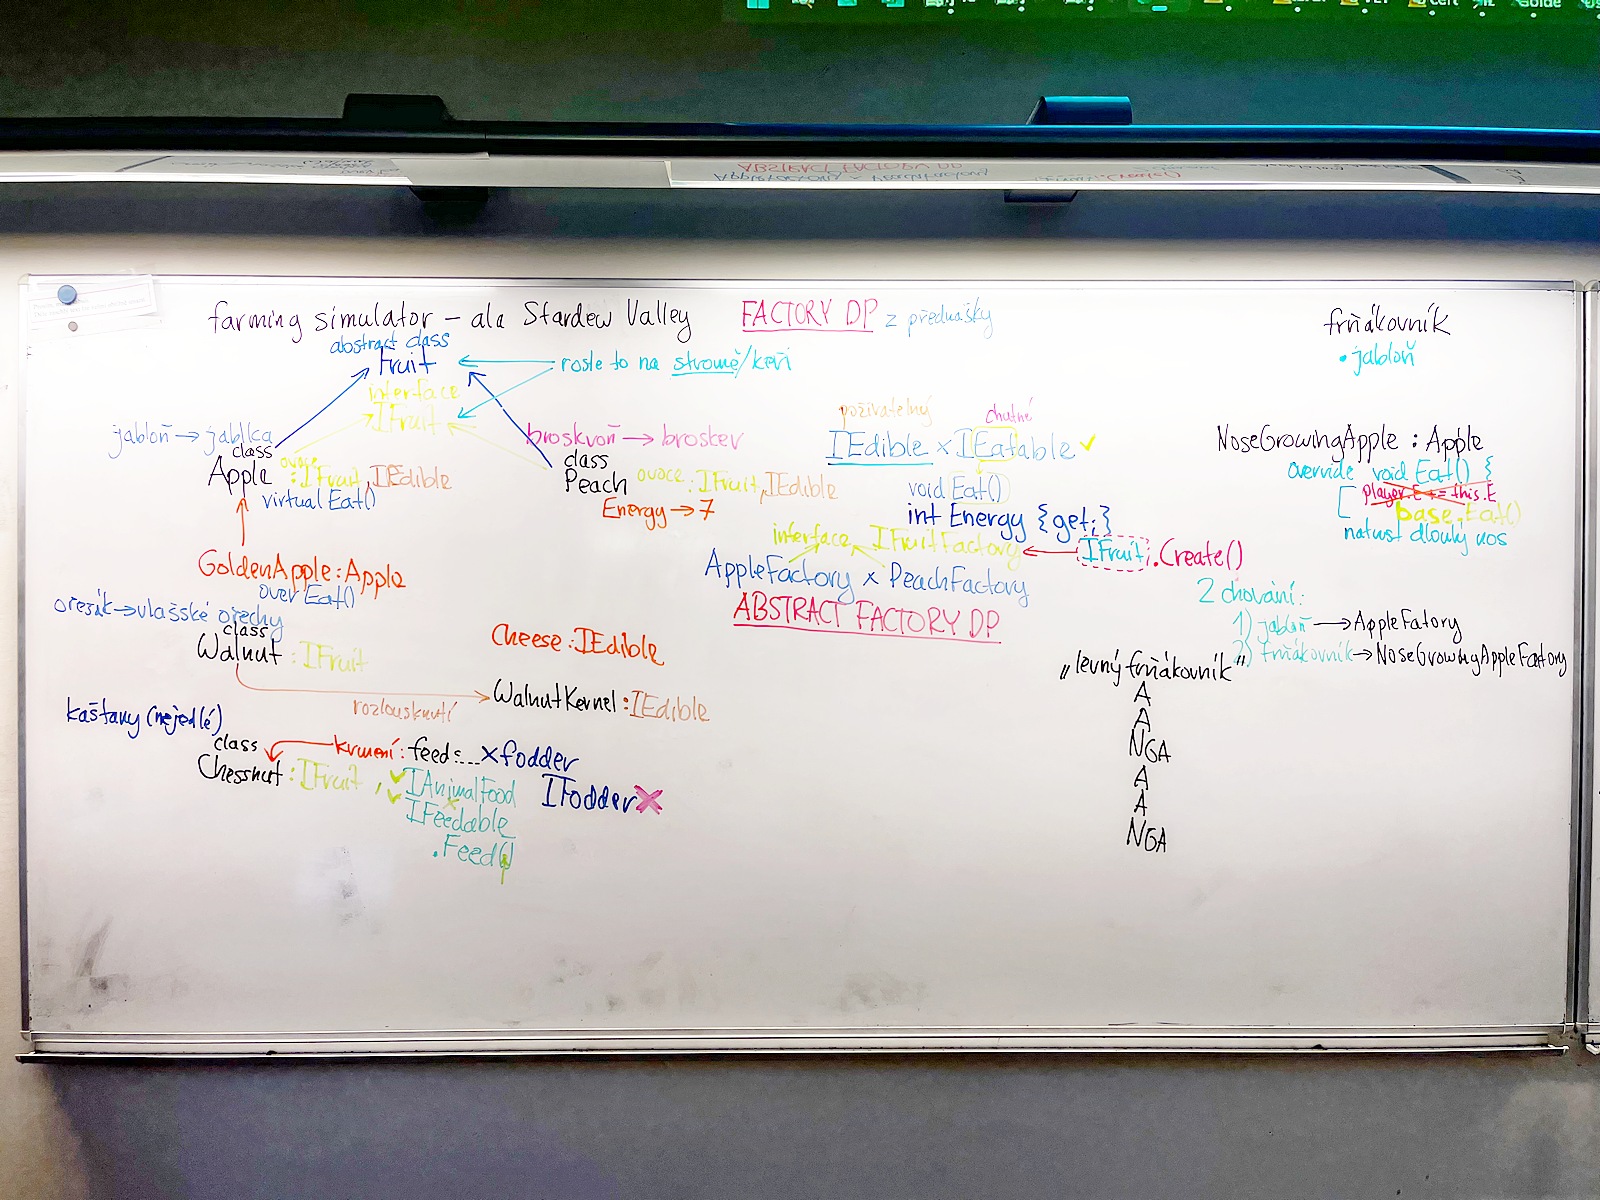 farming simulator – ala Stardew Valley
FACTORY DP z přednášky
abstract class
Fruit
roste to na stromě/keři
interface
IFruit
jabloň → jablka
class
Apple
ovoce
: IFruit, IEdible
virtual Eat()
broskvoň → broskev
class
Peach
ovoce : IFruit, IEdible
Energy → 7
GoldenApple : Apple
over Eat()
ořešák → vlašské ořechy
class
Walnut : IFruit
Cheese : IEdible
rozlousknutí
WalnutKernel : IEdible
kaštany (nejedlé)
class
Chessnut : IFruit , ✓ IAnimalFood
krmení : feed : ... × fodder
IFodder ×
✓ IFeedable
.Feed()
poživatelný
chutné
IEdible × IEatable ✓
void Eat()
int Energy {get;}
interface IFruitFactory
IFruit .Create()
AppleFactory × PeachFactory
ABSTRACT FACTORY DP
frňákovník
• jabloň
NoseGrowingApple : Apple
override void Eat() {
player.E += this.E
base.Eat()
narůst dlouhý nos
2 chování:
1) jabloň → AppleFatory
2) frňákovník → NoseGrowingAppleFactory
„levný frňákovník"
A
A
NGA
A
A
NGA